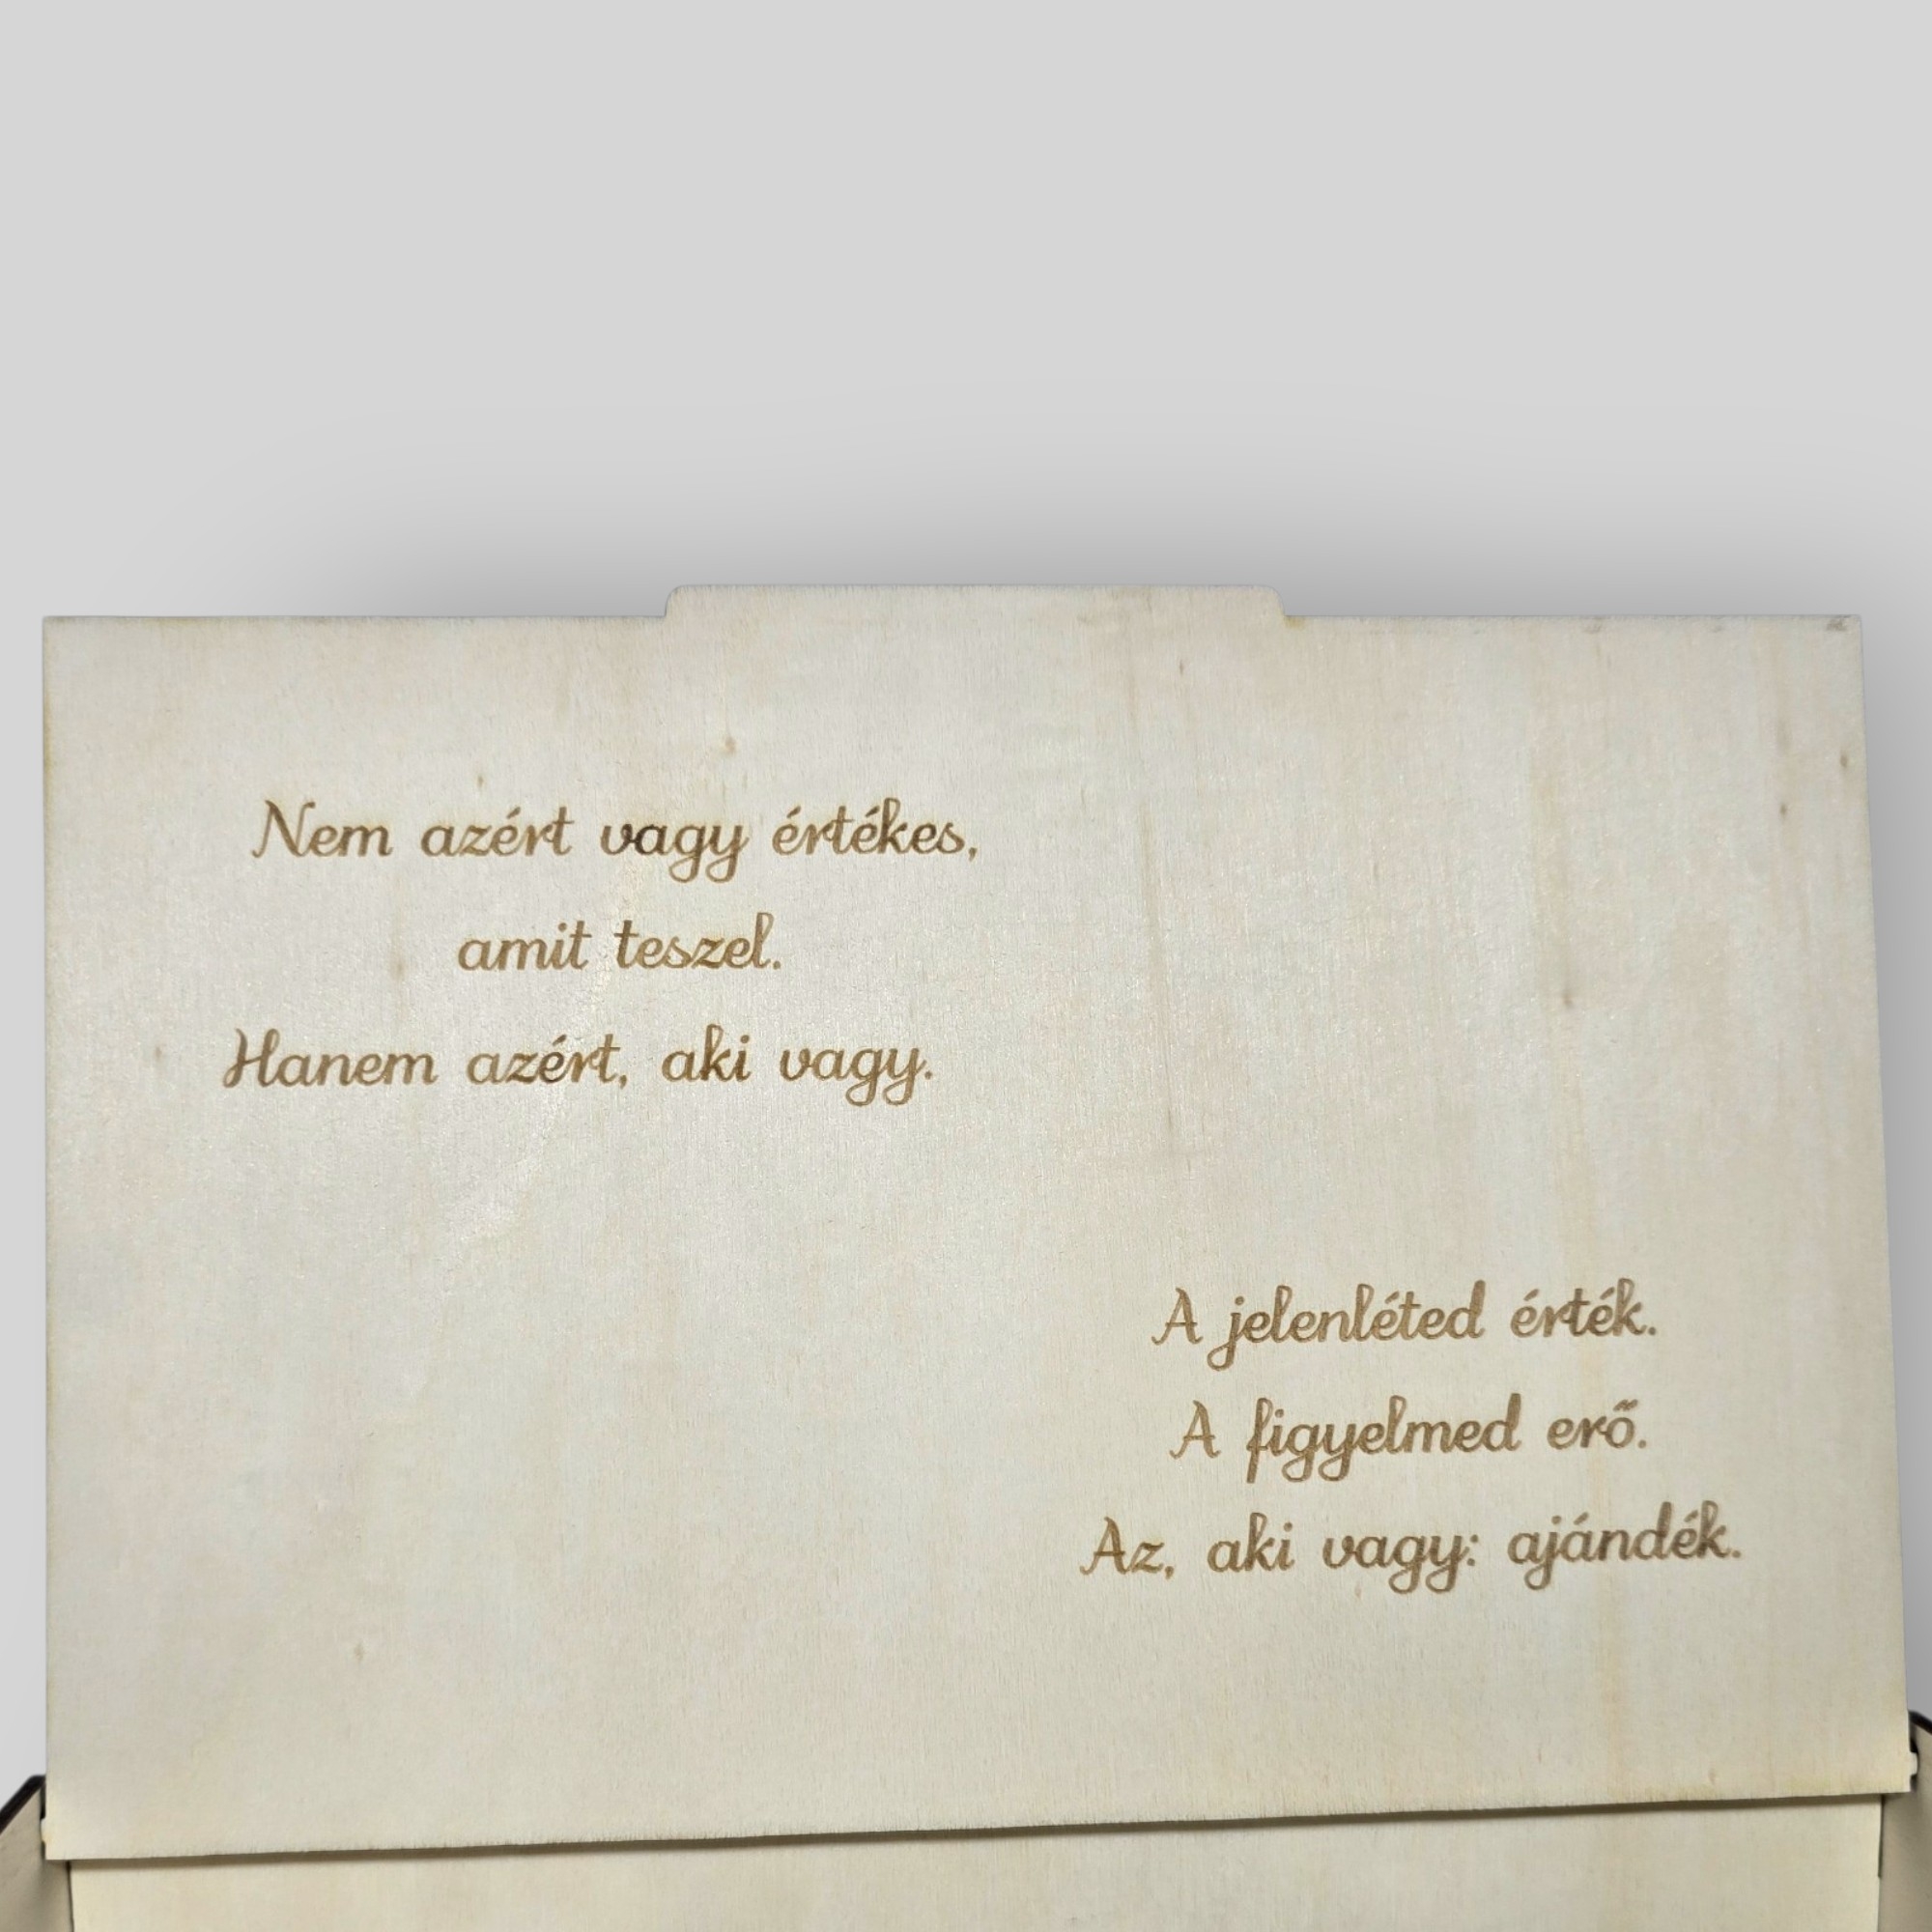 Nem azért vagy értékes,
amit teszel.
Hanem azért, aki vagy.
A jelenléted érték.
A figyelmed erő.
Az, aki vagy: ajándék.